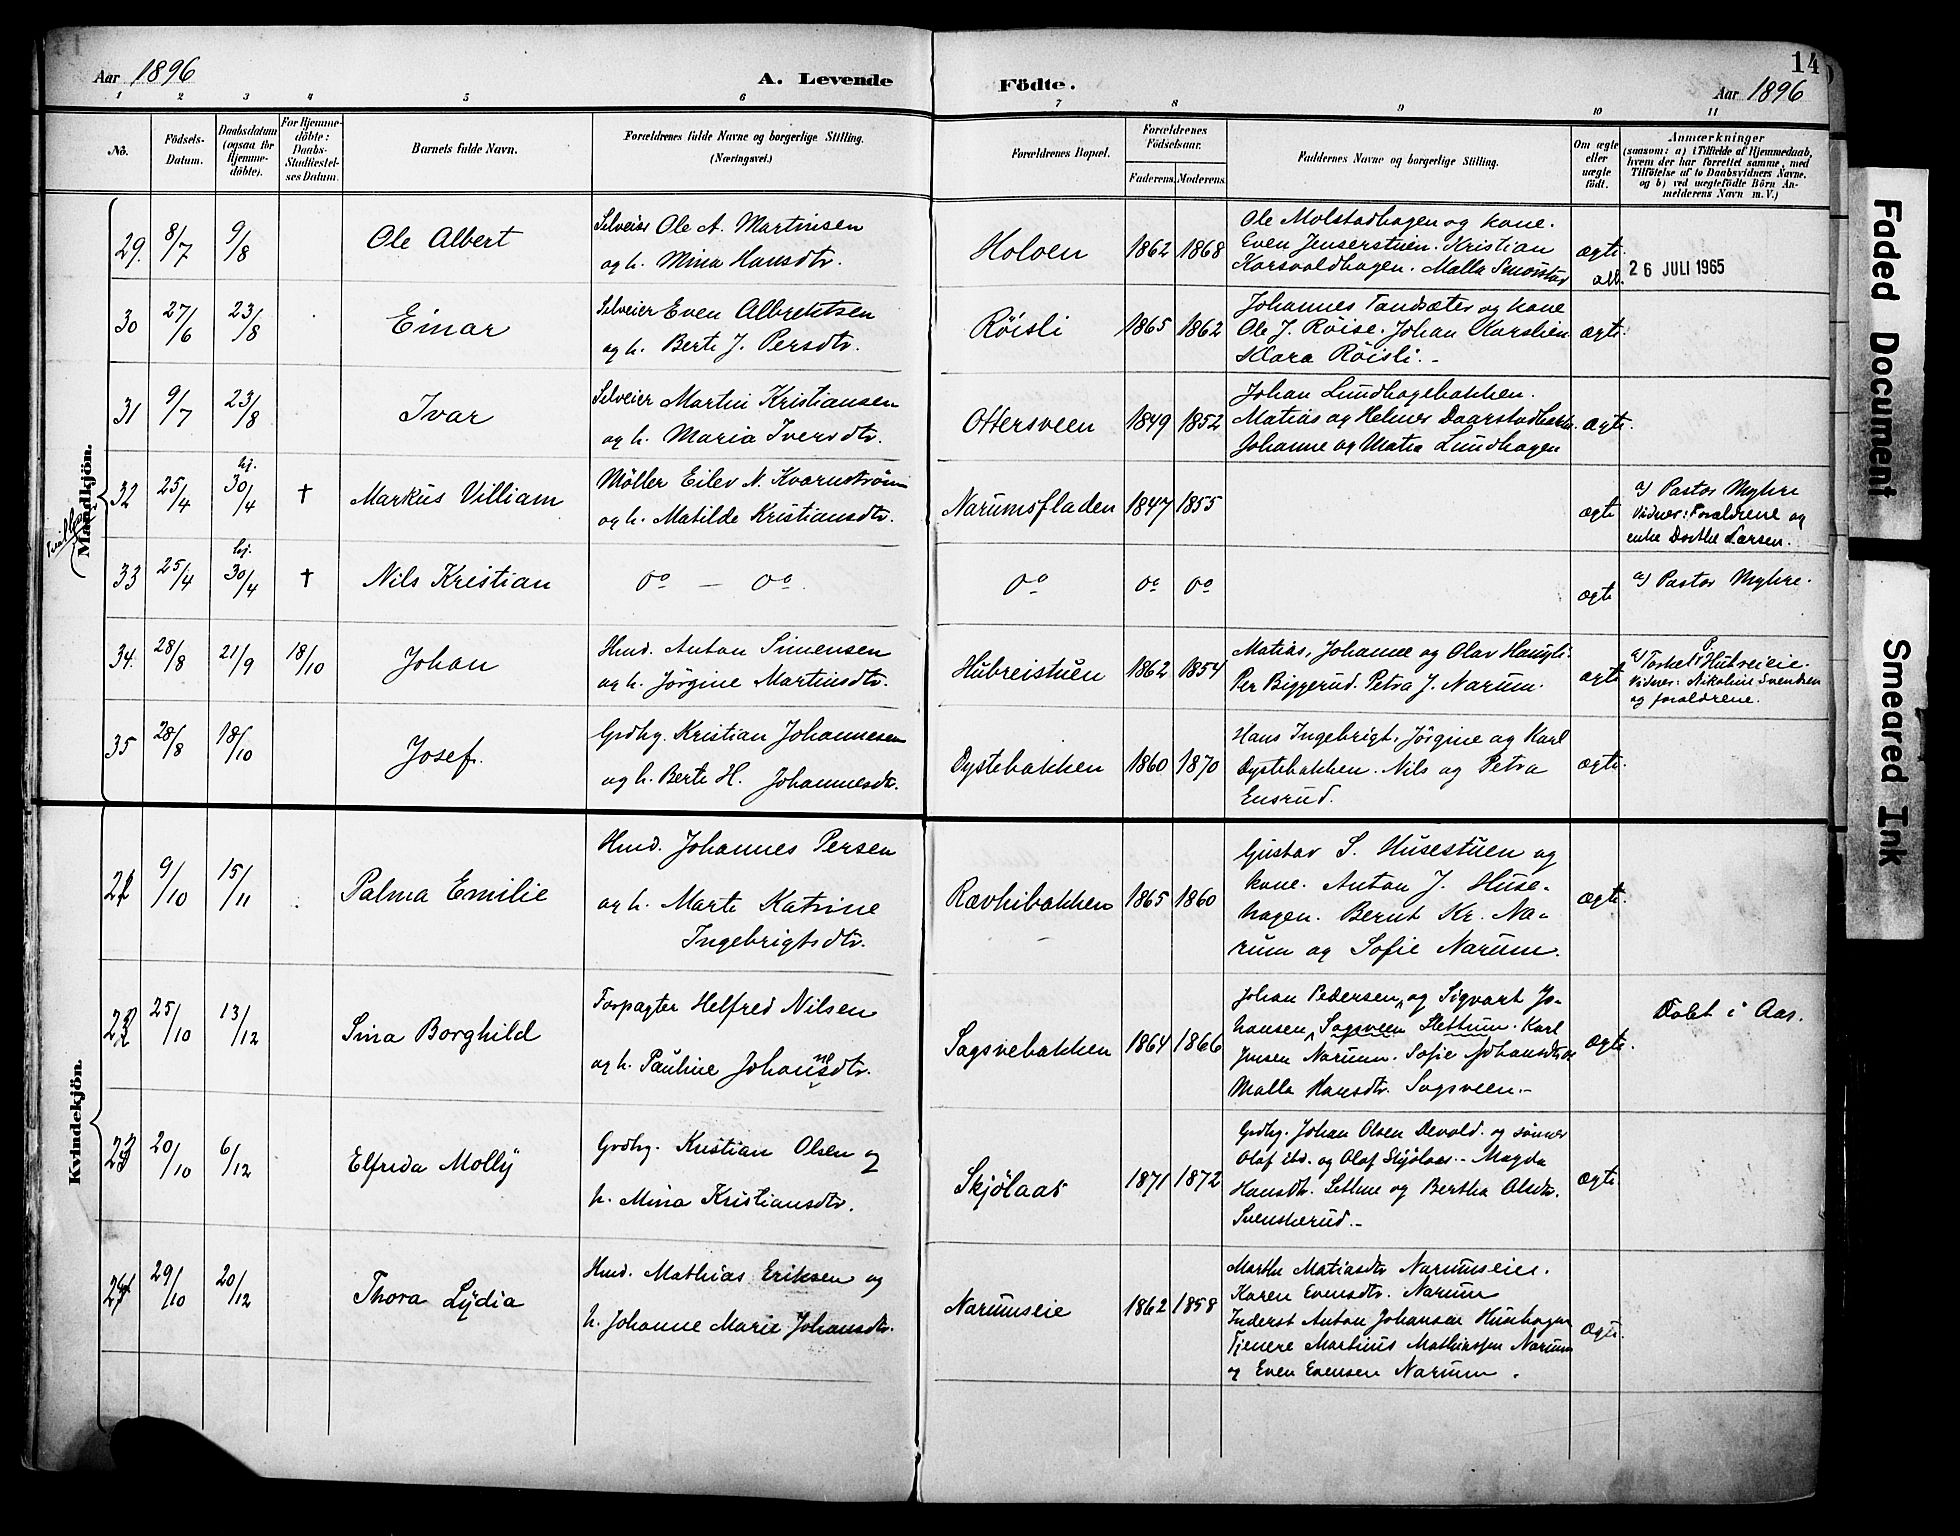 14
Aar 1896
A. Levende Födte.
Aar 1896
1 2 3 4 5 6 7 8 9 10 11
No.
Födsels-Datum.
Daabsdatum (ogsaa for Hjemme-döbte).
For Hjemme-döbte: Daabs-Stadfæstel-ses Datum.
Barnets fulde Navn.
Forældrenes fulde Navne og borgerlige Stilling.
(Næringsvei.)
Forældrenes Bopæl.
Forældrenes Födselsaar.
Faderens. Moderens.
Faddernes Navne og borgerlige Stilling.
Om ægte eller uægte födt.
Anmærkninger
(saasom: a) i Tilfælde af Hjemmedaab,
hvem der har forrettet samme, med
Tilföielse af to Daabsvidners Navne.
og b) ved uægtefödte Börn An-
melderens Navn m. V.)
Mandkjön.
29. 8/7 9/8 Ole Albert
Selveier Ole A. Martinsen
og h. Mina Hansdtr.
Holoen 1862 1868
Ole Molstadhagen og kone.
Even Jenserstuen. Kristian
Korsvoldhagen. Malla Smorstad
ægte
26 JULI 1965
30 27/6 23/8 Einar
Selveier Even Albrektsen
og h. Berte J. Persdtr.
Röisli 1865 1862
Johannes Tandsæter og kone
Ole J. Röise. Johan Korslien
Klara Röisli. -
ægte
31 9/7 23/8 Ivar
Selveier Martin Kristiansen
og h. Maria Iversdtr.
Ottersveen 1849 1852
Johan Lundhagebakken.
Matias og Helmer Daarstadbakk.
Johanne og Matea Lundhagen
ægte.
32 25/4 hj. 30/4 † Markus Villiam
Möller Eilev N. Kvarnström
og h. Matilde Kristiansdtr.
Narumsfladen 1847 1855
ægte
a) Pastor Myhre
Vidner: Forældrene og
enke Dorthe Larsen.
33 25/4 hj. 30/4 † Nils Kristian
do — do.
do do do
ægte
a) Pastor Myhre.
34. 28/8 21/9 18/10 Johan
Hmd. Anton Simensen
og h. Jörgine Martinsdtr.
Hubreistuen 1862 1854
Matias, Johanne og Olav Haugli.
Per Biggerud. Petra J. Narum.
ægte
a) Torkel P. Hubreieie.
Vidner: Nikoline Svendsen
og forældrene.
35 28/8 18/10 Josef.
Grdbg. Kristian Johannesen
og h. Berte H. Johannesdtr.
Dystebakken 1860 1870
Hans Ingebrigt, Jörgine og Karl
Dystebakken. Nils og Petra
Ensrud.
ægte.
Kvindekjön.
21 9/10 15/11 Palma Emilie
Hmd. Johannes Persen
og h. Marte Katrine
Ingebrigtsdtr.
Rævhibakken 1865 1860
Gustav S. Husestuen og
kone. Anton J. Huse-
hagen. Bernt Kr. Na-
rum og Sofie Narum.
ægte.
22 25/10 13/12 Sina Borghild
Forpagter Helfred Nilsen
og h. Pauline Johansdtr.
Sagsvebakken 1864 1866
Johan Pedersen og Sigvart Jo-
hansen Sagsveen Slettum. Karl
Jensen Narum. Sofie Johansdtr og
Malla Hansdtr. Sagsveen.-
ægte.
Döbt i Aas.
23 20/10 6/12 Elfrida Molly
Grdbg. Kristian Olsen og
h. Mina Kristiansdtr.
Skjölaas 1871 1872
Grdbg. Johan Olsen Devold. og sönner
Olaf ibd. og Olaf Skjölaas. - Magda
Hansdtr. Sethne og Bertha Olsdtr.
Svenskerud. -
ægte
24 29/10 20/12 Thora Lydia
Hmd. Mathias Eriksen og
h. Johanne Marie Johansdtr.
Narumseie 1862 1858
Marthe Matiasdtr Narumseie.
Karen Evensdtr. Narum
Inderst Anton Johansen Husehagen
Tjenere Martinus Mathiassen Narum
og Even Evensen Narum.
ægte.
Faded Document
Smeared Ink